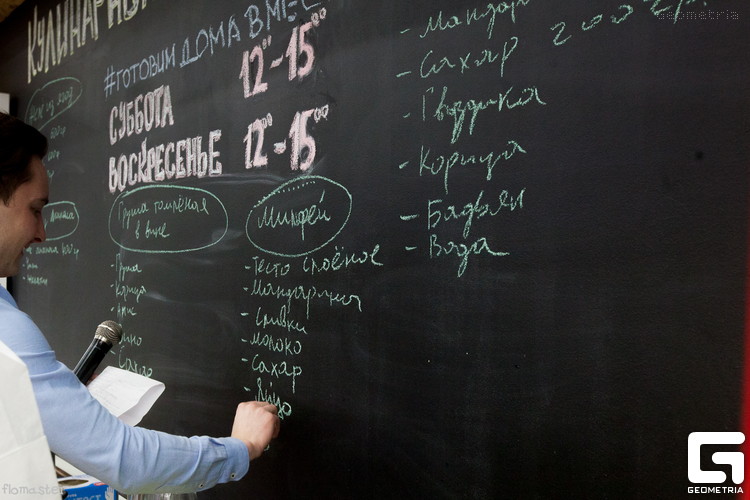 #ГОТОВИМ ДОМА ВМЕС
СУББОТА 12⁰⁰-15⁰⁰
ВОСКРЕСЕНЬЕ 12⁰⁰-15⁰⁰
Груша томлёная
в вине
- Груша
- Корица
Сахар
Милфей
- Тесто слоёное
- Мандарины
- Сливки
- Молоко
- Сахар
- Яйцо
- Мандар
- Сахар 200
- Гвоздика
- Корица
- Бадьян
- Вода
geometria
flomaster
GEOMETRIA